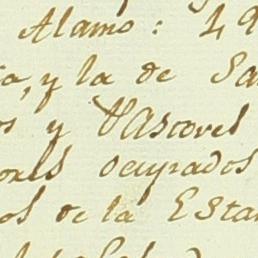 Alamo: 49
a, y la de Sa
os y VAscovel
ores ocupados
os de la Estan